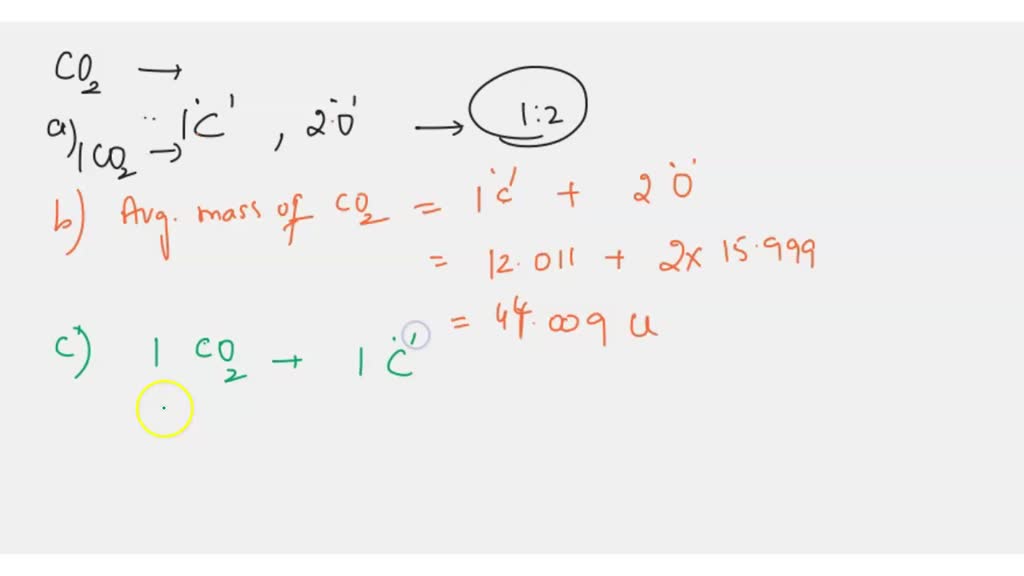 CO₂ →
a) 1CO₂ → 1'C', 2'O' → 1:2
b) Avg. mass of CO₂ = 1'C' + 2'O'
= 12.011 + 2x 15.999
= 44.009 u
c) 1 CO₂ → 1'C'